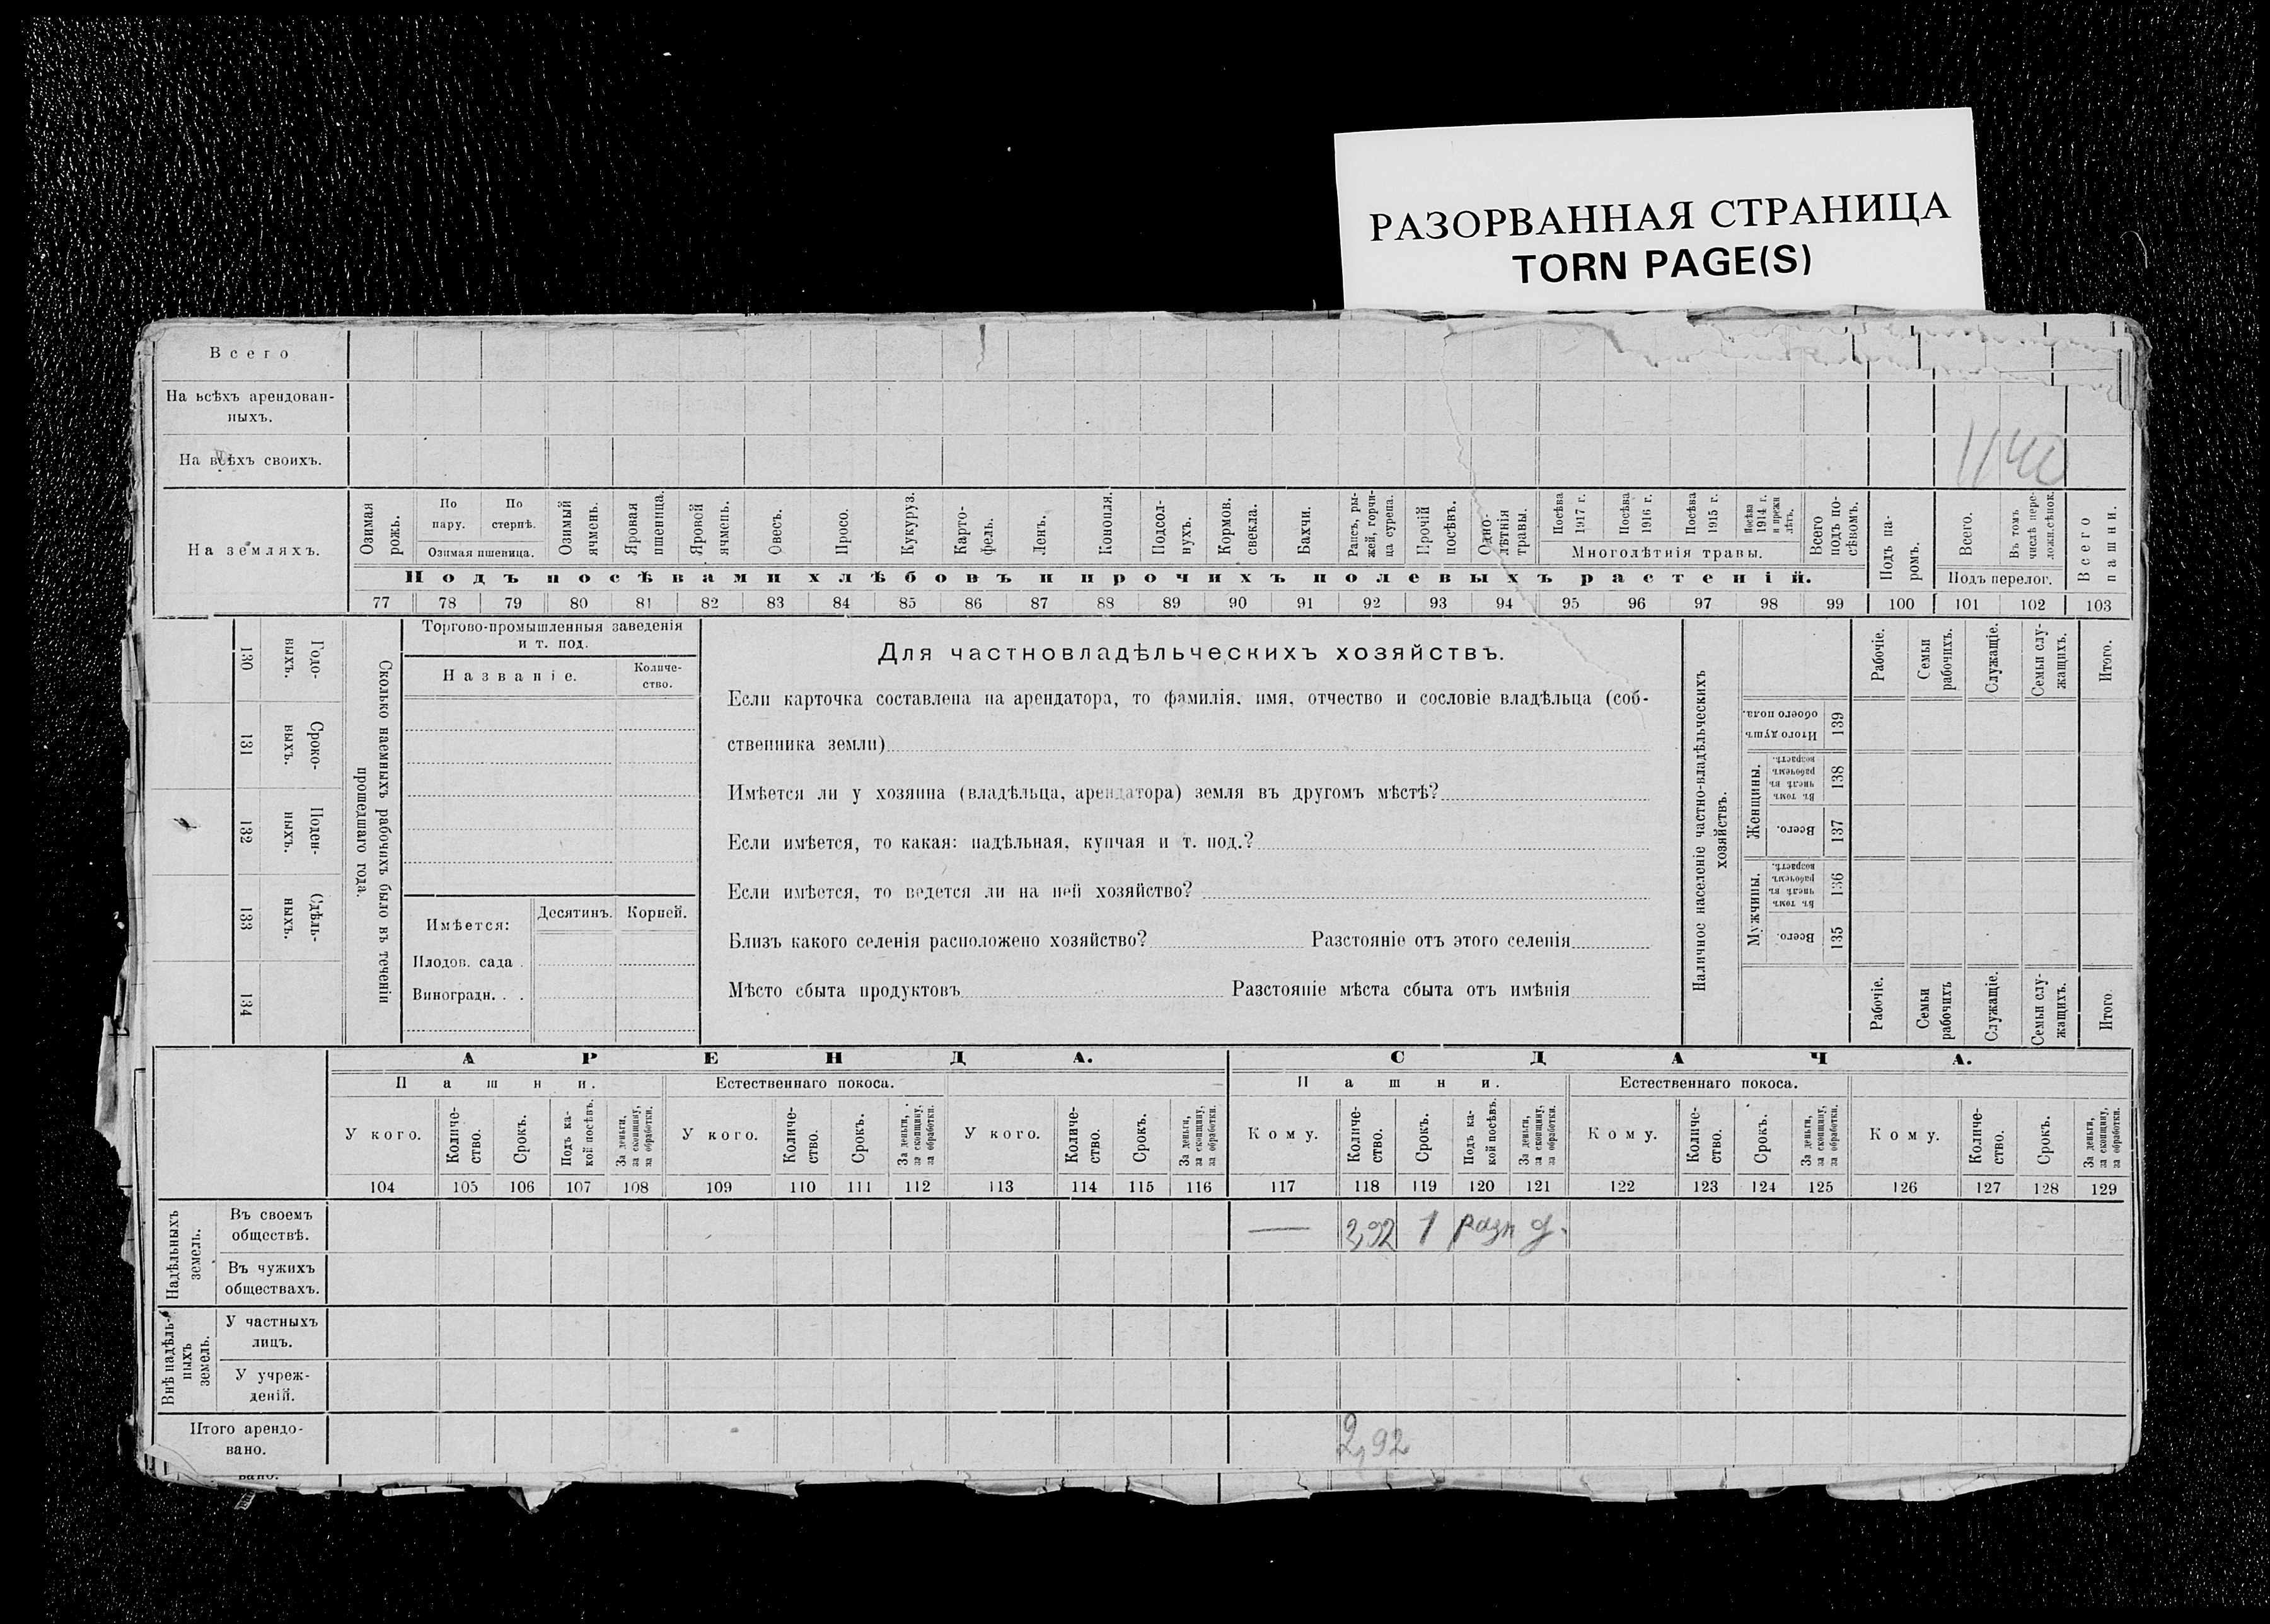 РАЗОРВАННАЯ СТРАНИЦА
TORN PAGE(S)
Всего
На всѣхъ арендован-
ныхъ.
На всѣхъ своихъ.
1140
На земляхъ.
Озимая рожь.
По пару.
По стернѣ.
Озимая пшеница.
Озимый ячмень.
Яровая пшеница.
Яровой ячмень.
Овесъ.
Просо.
Кукуруз.
Карто-
фель.
Ленъ.
Конопля.
Подсол-
нухъ.
Кормов. свекла.
Бахчи.
Рапсъ, ры-
жей, горчи-
ца сурепа.
Прочій посѣвъ.
Одно-
лѣтнія травы.
Посѣва 1917 г.
Посѣва 1916 г.
Посѣва 1915 г.
Посѣва 1914 г. и прежн лѣтъ.
Многолѣтнія травы.
Всего подъ по-
сѣвомъ.
Подъ па-
ромъ.
Всего.
Въ томъ числѣ пере-
ложн.сѣнок.
Подъ перелог.
Всего пашни.
Подъ посѣвами хлѣбовъ и прочихъ полевыхъ растеній.
77 78 79 80 81 82 83 84 85 86 87 88 89 90 91 92 93 94 95 96 97 98 99 100 101 102 103
130 Годо-
выхъ.
131 Сроко-
выхъ.
132 Поден-
ныхъ.
133 Сдѣль-
ныхъ.
134
Сколько наемныхъ рабочихъ было въ теченіи
прошедшаго года.
Торгово-промышленныя заведенія
и т. под.
Названіе.
Количе-
ство.
Имѣется:
Десятинъ.
Корней.
Плодов. сада .
Виноградн. . .
Для частновладѣльческихъ хозяйствъ.
Если карточка составлена на арендатора, то фамилія, имя, отчество и сословіе владѣльца (соб-
ственника земли)
Имѣется ли у хозяина (владѣльца, арендатора) земля въ другомъ мѣстѣ?
Если имѣется, то какая: надѣльная, купчая и т. под.?
Если имѣется, то ведется ли на ней хозяйство?
Близъ какого селенія расположено хозяйство? Разстояніе отъ этого селенія
Мѣсто сбыта продуктовъ Разстояніе мѣста сбыта отъ имѣнія
Наличное населеніе частно-владѣльческихъ
хозяйствъ.
Рабочіе.
Семьи рабочихъ.
Служащіе.
Семьи слу-
жащихъ.
Итого.
Итого душъ обоего пола. 139
Женщины.
Въ томъ числѣ въ рабочемъ возрастѣ. 138
Всего. 137
Мужчины.
Въ томъ числѣ въ рабочемъ возрастѣ. 136
Всего. 135
Рабочіе.
Семьи рабочихъ
Служащіе.
Семьи слу-
жащихъ.
Итого
АРЕНДА.
СДАЧА.
Пашни.
Естественнаго покоса.
Пашни.
Естественнаго покоса.
У кого.
Количе-
ство.
Срокъ.
Подъ ка-
кой посѣвъ.
За деньги, за скопщину, за обработки.
У кого.
Количе-
ство.
Срокъ.
За деньги, за скопщину, за обработки.
У кого.
Количе-
ство.
Срокъ.
За деньги, за скопщину, за обработки.
Кому.
Количе-
ство.
Срокъ.
Подъ ка-
кой посѣвъ.
За деньги, за скопщину, за обработки.
Кому.
Количе-
ство.
Срокъ.
За деньги, за скопщину, за обработки.
Кому.
Количе-
ство.
Срокъ.
За деньги, за скопщину, за обработки.
104 105 106 107 108 109 110 111 112 113 114 115 116 117 118 119 120 121 122 123 124 125 126 127 128 129
Надѣльныхъ земель.
Въ своемъ
обществѣ.
— 2,92 1 разн д.
Въ чужихъ
обществахъ.
Внѣ надѣль-
ныхъ земель.
У частныхъ
лицъ.
У учреж-
деній.
Итого арендо-
вано.
2,92
вано.